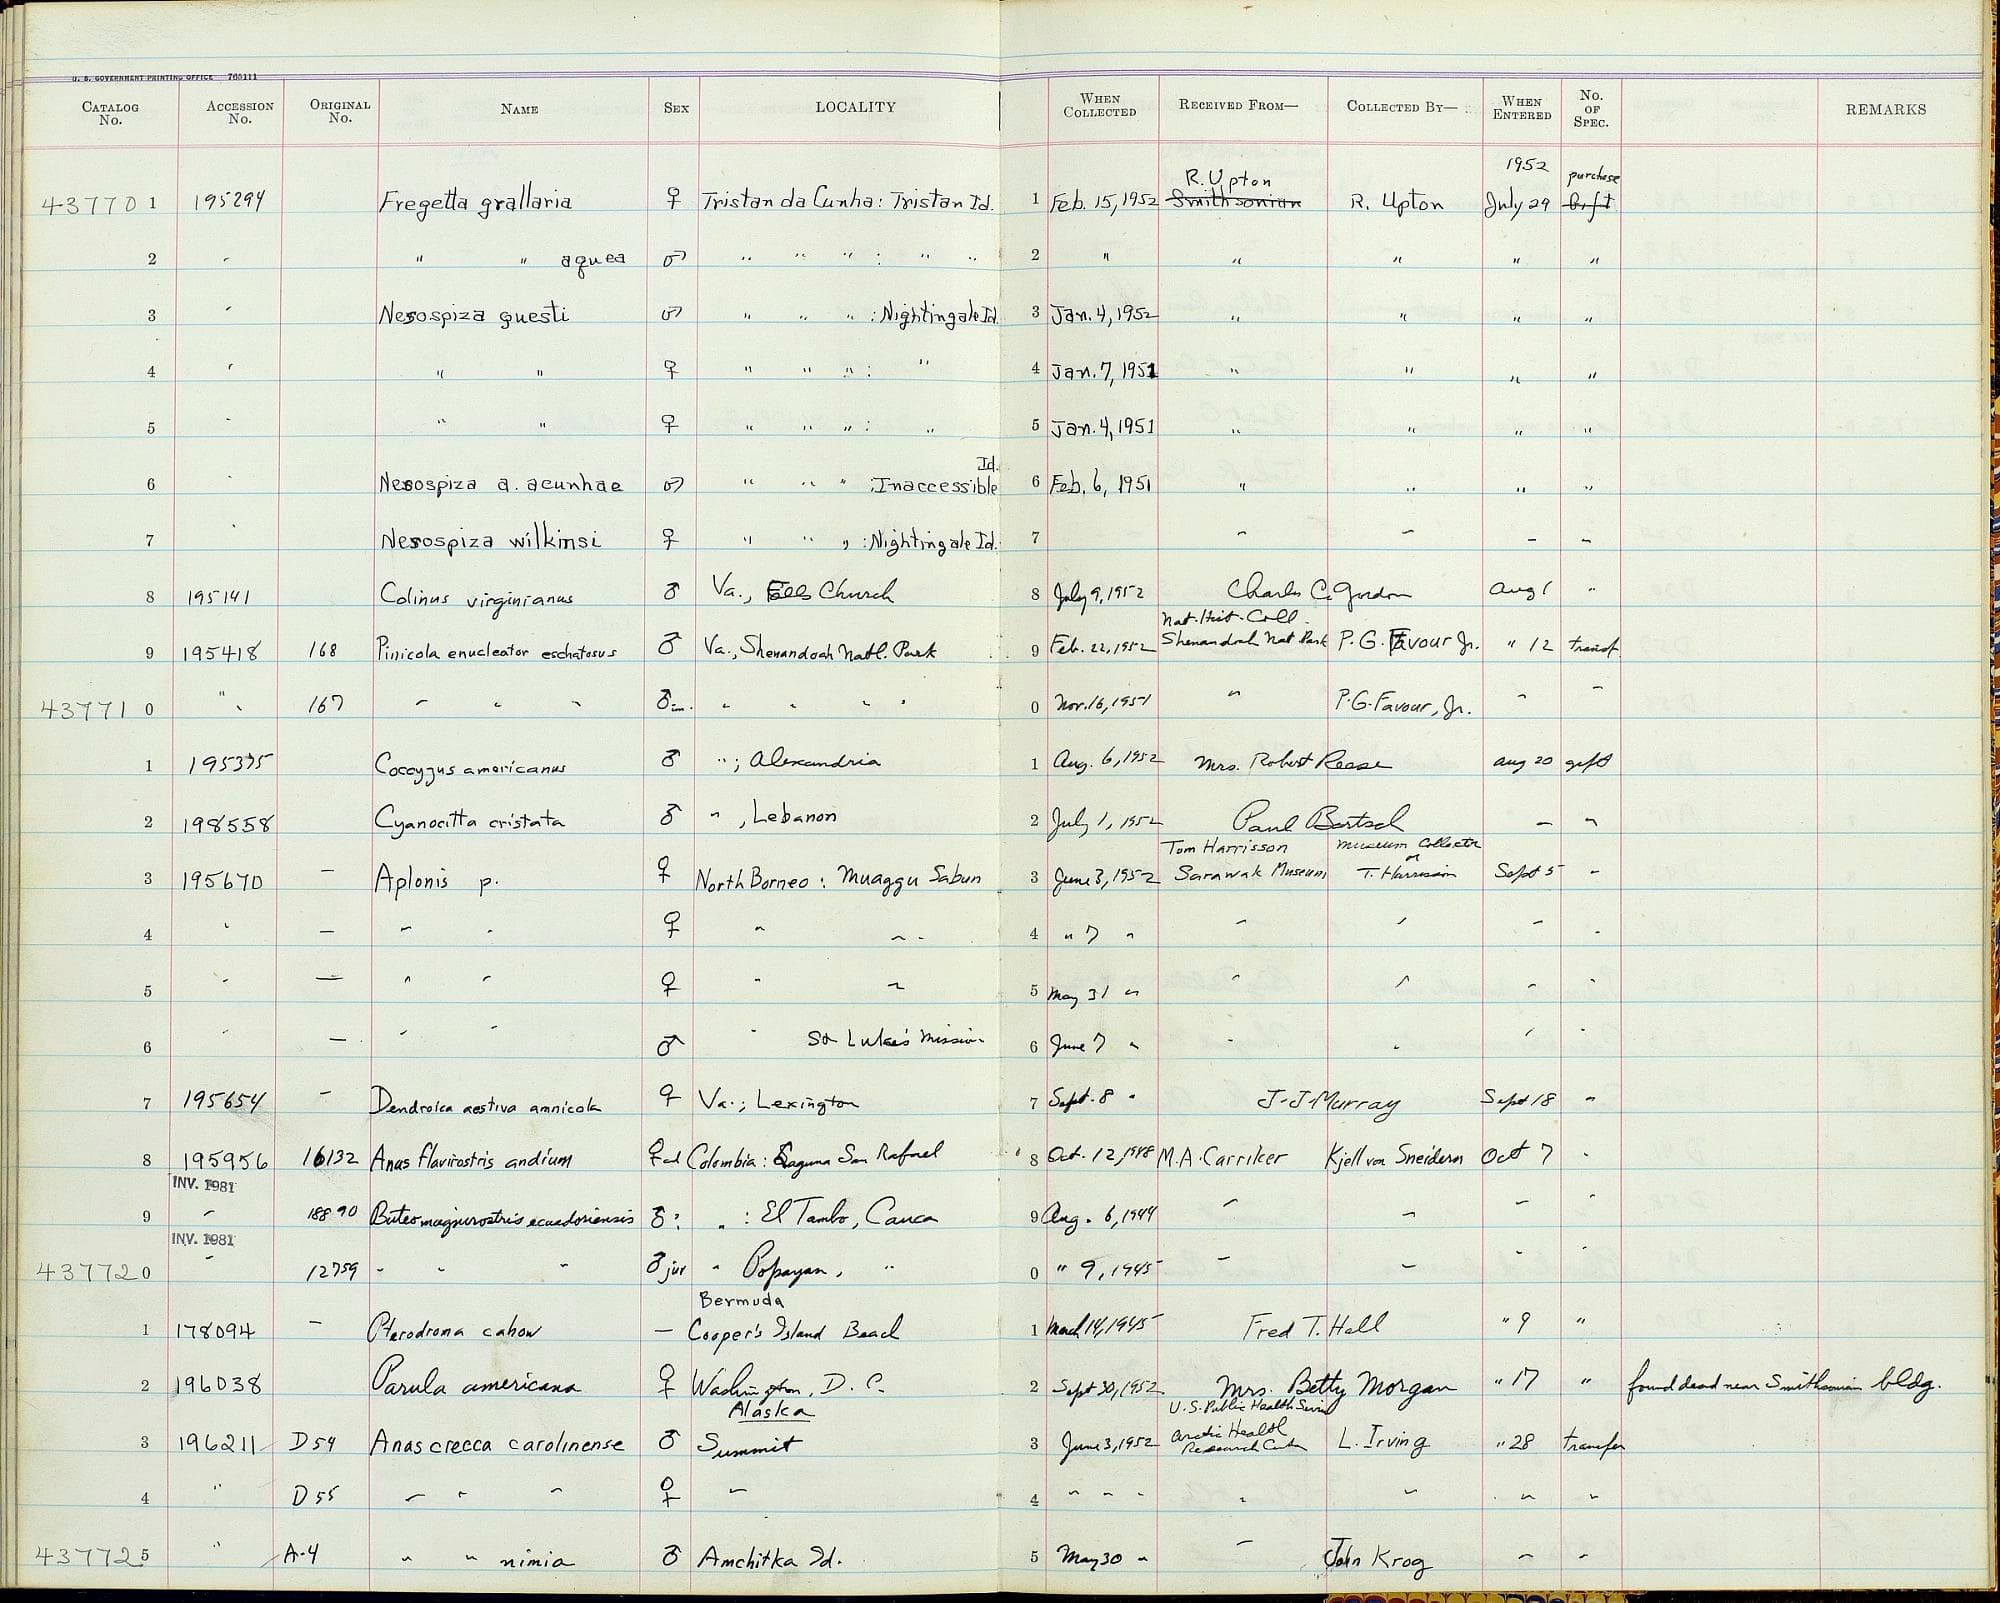 U. S. GOVERNMENT PRINTING OFFICE 765111
CATALOG No. ACCESSION No. ORIGINAL No. NAME SEX LOCALITY WHEN COLLECTED RECEIVED FROM— COLLECTED BY— WHEN ENTERED No. OF SPEC. REMARKS
R. Upton 1952 purchase
43770 1 195294 Fregetta grallaria ♀ Tristan da Cunha: Tristan Id. 1 Feb. 15, 1952 Smithsonian R. Upton July 29 Gift
2 " " " aquea ♂ " " " : " " 2 " " " " "
3 " Nesospiza questi ♂ " " " : Nightingale Id. 3 Jan. 4, 1952 " " " "
4 " " " ♀ " " " : " 4 Jan. 7, 1951 " " " "
5 " " " ♀ " " " : " 5 Jan. 4, 1951 " " " "
Id.
6 " Nesospiza a. acunhae ♂ " " " : Inaccessible 6 Feb. 6, 1951 " " " "
7 " Nesospiza wilkinsi ♀ " " " : Nightingale Id. 7 " " " "
8 195141 Colinus virginianus ♂ Va., Falls Church 8 July 9, 1952 Charles C. Gordon Aug 1 "
Nat. Hist. Coll.
9 195418 168 Pinicola enucleator eschatosus ♂ Va., Shenandoah Natl. Park 9 Feb. 22, 1952 Shenandoah Nat Park P. G. Favour Jr. " 12 transf.
43771 0 " 167 " " " ♂ im. " " " " 0 Nov. 16, 1951 " P. G. Favour, Jr. " "
1 195375 Coccyzus americanus ♂ " ; Alexandria 1 Aug. 6, 1952 Mrs. Robert Reese Aug 20 gift
2 198558 Cyanocitta cristata ♂ " , Lebanon 2 July 1, 1952 Paul Bartsch — "
Tom Harrisson museum collector or
3 195670 — Aplonis p. ♀ North Borneo : Muaggu Sabun 3 June 3, 1952 Sarawak Museum T. Harrisson Sept 5 "
4 " — " " ♀ " " 4 " 7 " " " " "
5 " — " " ♀ " " 5 May 31 " " " " "
6 " — " " ♂ " St Luke's Mission 6 June 7 " " " " "
7 195654 — Dendroica aestiva amnicola ♀ Va.; Lexington 7 Sept. 8 " J. J. Murray Sept 18 "
8 195956 16132 Anas flavirostris andium ♀ ad Colombia : Laguna San Rafael 8 Oct. 12, 1948 M. A. Carriker Kjell von Sneidern Oct 7 "
INV. 1981
9 " 18890 Buteo magnirostris ecuadoriensis ♂? " : El Tambo, Cauca 9 Aug. 6, 1944 " " " "
INV. 1981
43772 0 " 12759 " " " ♂ juv " Popayan, " 0 " 9, 1945 " " " "
Bermuda
1 178094 — Pterodroma cahow — Cooper's Island Beach 1 March 14, 1945 Fred T. Hall " 9 "
2 196038 Parula americana ♀ Washington, D. C. 2 Sept 30, 1952 Mrs. Betty Morgan " 17 " found dead near Smithsonian bldg.
Alaska U. S. Public Health Service
3 196211 D 54 Anas crecca carolinense ♂ Summit 3 June 3, 1952 Arctic Health Research Center L. Irving " 28 transfer
4 " D 55 " " " ♀ " 4 " " " " " " "
43772 5 " A-4 " " nimia ♂ Amchitka Id. 5 May 30 " " John Krog " "